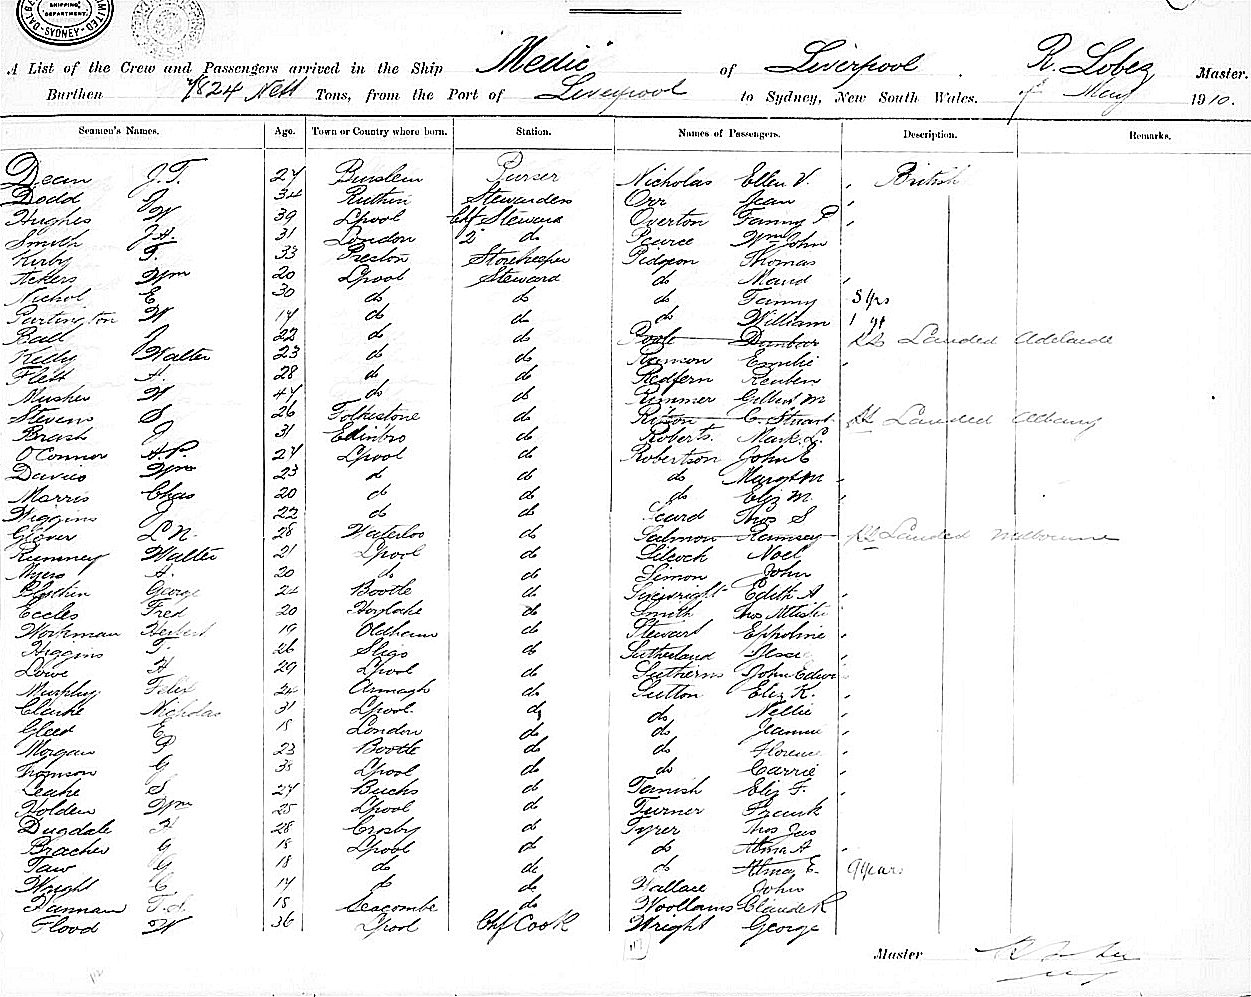 SHIPPING DEPARTMENT
SYDNEY
A List of the Crew and Passengers arrived in the Ship Medic of Liverpool R. Lobez Master.
Burthen 7824 Nett Tons, from the Port of Liverpool to Sydney, New South Wales. of May 1910.
Seamen's Names. Age. Town or Country where born. Station. Names of Passengers. Description. Remarks.
Dean J.T. 27 Burslem Purser Nicholas Ellen V. British
Dodd J 34 Ruthin Stewardess Orr Jean
Hughes W 39 Lpool Chf Steward Overton Fanny P
Smith J.A. 31 London 2 do Pearce Wm John
Kirby T. 33 Preston Storekeeper Pidgeon Thomas
Ackers Wm 20 Lpool Steward do Maud
Nichol E 30 do do do Fanny 5 yrs
Partington W 17 do do do William 1 yr
Ball J 22 do do Poole Dunbar Landed Adelaide
Kelly Walter 23 do do Ranson Emilie
Flett A. 28 do do Redfern Reuben
Musker W 47 do do Rimmer Gilbert M
Steven S 26 Folkestone do Ritson C. Stuart Landed Albany
Brash J 31 Edinbro do Roberts. Mark. L.
O'Connor A.P. 27 Lpool do Robertson John E
Davies Wm 23 do do do Margt M
Morris Chas 20 do do do Eliz M
Wiggins J 22 do do Seard Thos S
Glover L.N. 28 Waterloo do Salmon Ramsey Landed Melbourne
Rumney Walter 21 Lpool do Silcock Noel
Myers A. 20 do do Simon John
George 24 Bootle do Edith A
Eccles Fred 20 Hoylake do Smith
Workman Herbert 19 Oldham do Stewart Epholine
Higgins T. 26 Sligo do Sutherland Jessie
Lowe H 29 Lpool do Sutherns John Edwin
Murphy Felix 24 Armagh do Sutton Eliz K.
Clarke Nicholas 31 Lpool do do Nellie
Gleed E 18 London do do Jeannie
Morgan P 23 Bootle do do Florence
Thomson G 38 Lpool do do Carrie
Leake S 27 Bucks do Tarnish Eliz F.
Holden Wm 25 Lpool do Turner Frank
Dugdale H 28 Crosby do Tyrer Thos Jas
Bracher G 18 Lpool do do Alma A
Taw G 18 do do do Alma E. 9 years
Wright C 17 do do Wallace John
Hannan T.A. 18 Seacombe do Woollams Claude R
Flood W 36 Lpool Chf Cook Wright George
Master